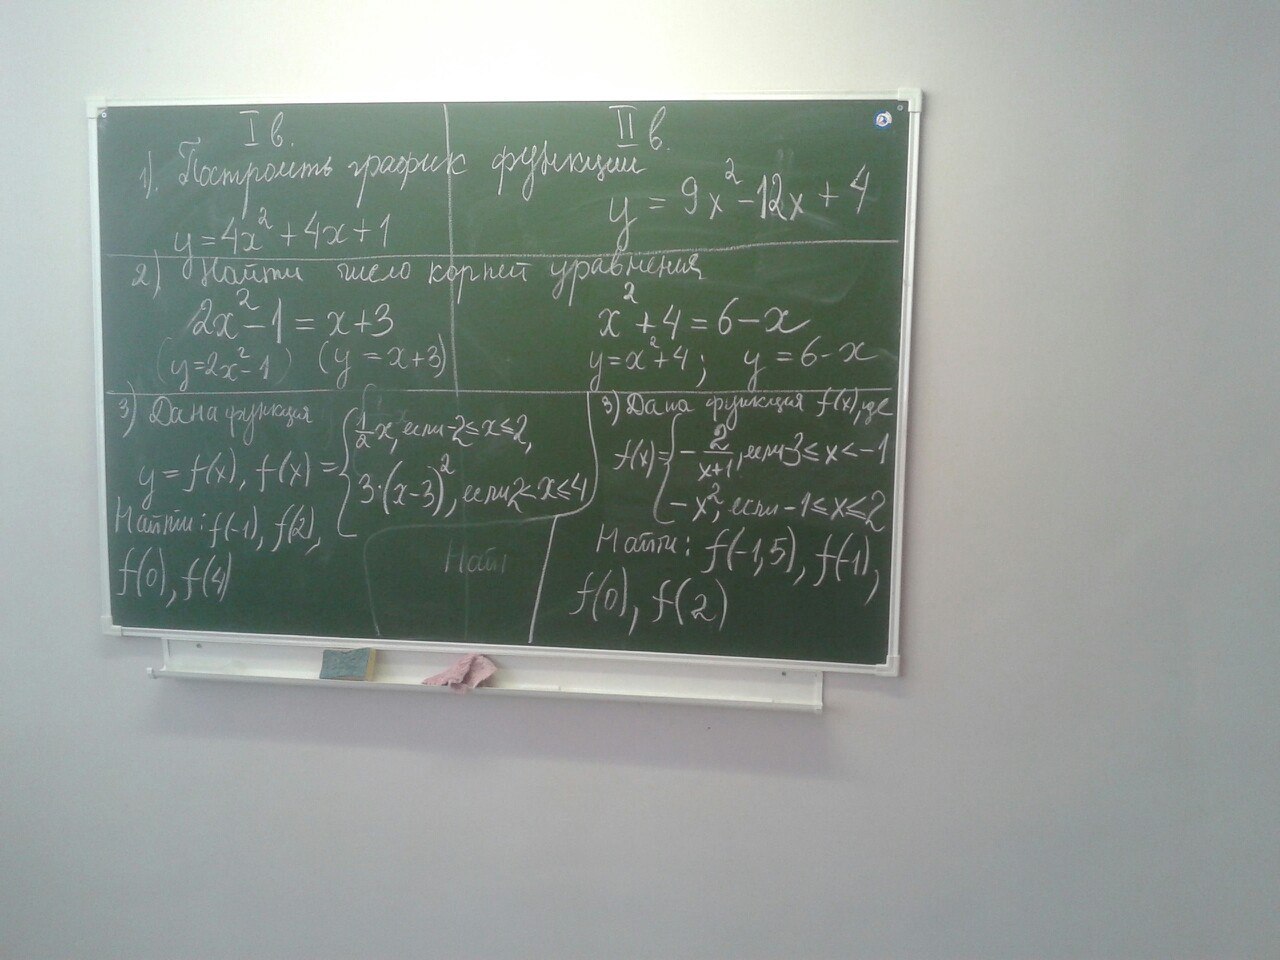 I в.
II в.
1). Построить график функции
y = 4x² + 4x + 1
y = 9x² - 12x + 4
2) Найти число корней уравнения
2x² - 1 = x + 3
(y = 2x² - 1) (y = x + 3)
x² + 4 = 6 - x
y = x² + 4; y = 6 - x
3) Дана функция
y = f(x), f(x) = { 1/2 x, если -2 ≤ x ≤ 2,
3·(x-3)², если 2 < x ≤ 4
Найти: f(-1), f(2),
f(0), f(4)
Найт
3) Дана функция f(x), где
f(x) = { - 2/(x+1), если -3 ≤ x < -1
- x², если -1 ≤ x ≤ 2
Найти: f(-1,5), f(-1),
f(0), f(2)